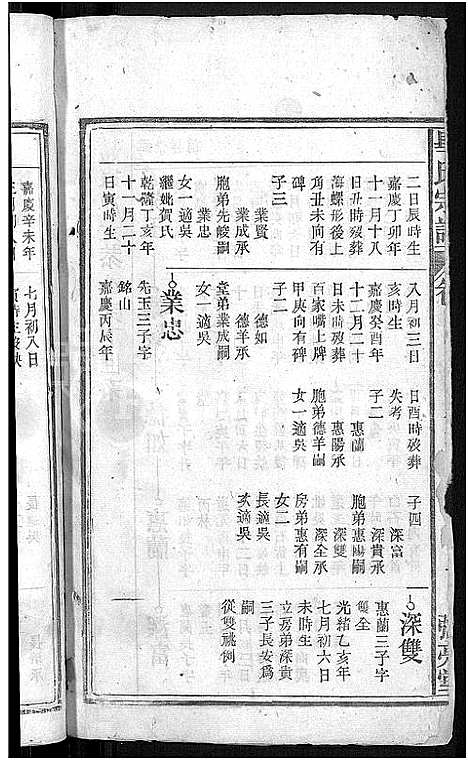 二日辰時生
嘉慶丁卯年
十一月十八
日丑時歿葬
海螺形後上
角丑未向有
碑
子三
業賢
業成承
業忠
胞弟先峻嗣
女一適吳
繼妣賀氏
乾隆丁亥年
十一月二十
日寅時生
八月初三日
亥時生
嘉慶癸酉年
十二月二十
日未時歿葬
百家嘴上牌
甲庚向有碑
子二
德如
德羊承
堂弟業成嗣
女一適吳
業忠
先玉三子字
銘山
嘉慶丙辰年
日酉時歿葬
失考
子二
惠蘭
惠陽承
胞弟德羊嗣
女一適吳
子四
深富
深貴承
胞弟惠陽嗣
深雙
深全承
房弟惠有嗣
女二
長適吳
次適吳
深雙
惠蘭三子字
雙全
光緒乙亥年
七月初六日
未時生
立房弟深貴
三子長安為
嗣
從雙祧例
嘉慶辛未年
七月初八日